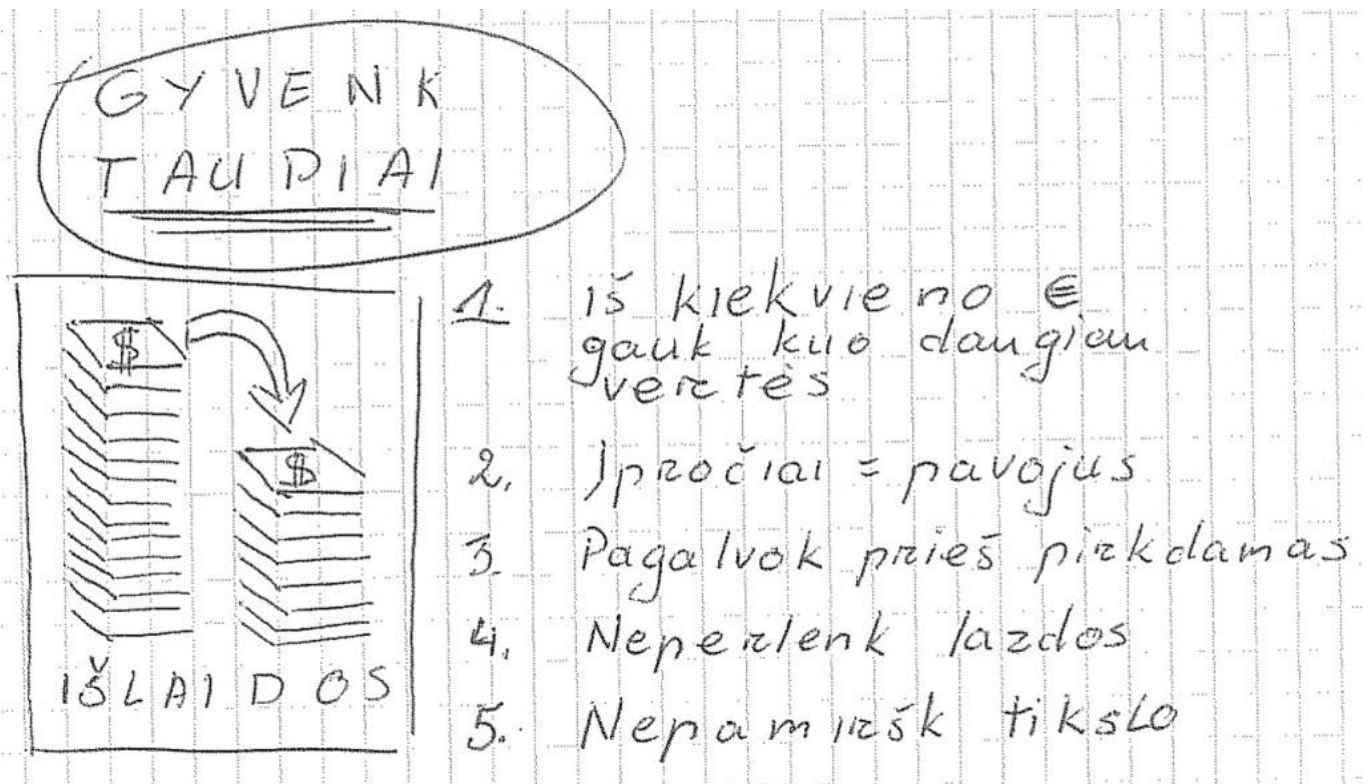 GYVENK
TAUPIAI
$
$
IŠLAIDOS
1. iš kiekvieno €
gauk kuo daugiau
vertės
2. Įpročiai = pavojus
3. Pagalvok prieš pirkdamas
4. Neperlenk lazdos
5. Nepamiršk tikslo